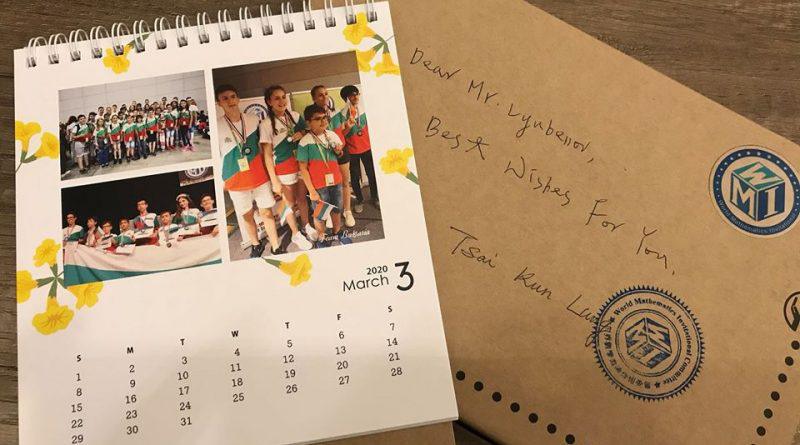 Team Bulgaria
2020
March 3
S M T W T F S
1 2 3 4 5 6 7
8 9 10 11 12 13 14
15 16 17 18 19 20 21
22 23 24 25 26 27 28
29 30 31
Dear Mr. Lyubenov,
Best Wishes For You,
Tsai Kun Lung
WMI
World Mathematics Invitational
World Mathematics Invitational Committee